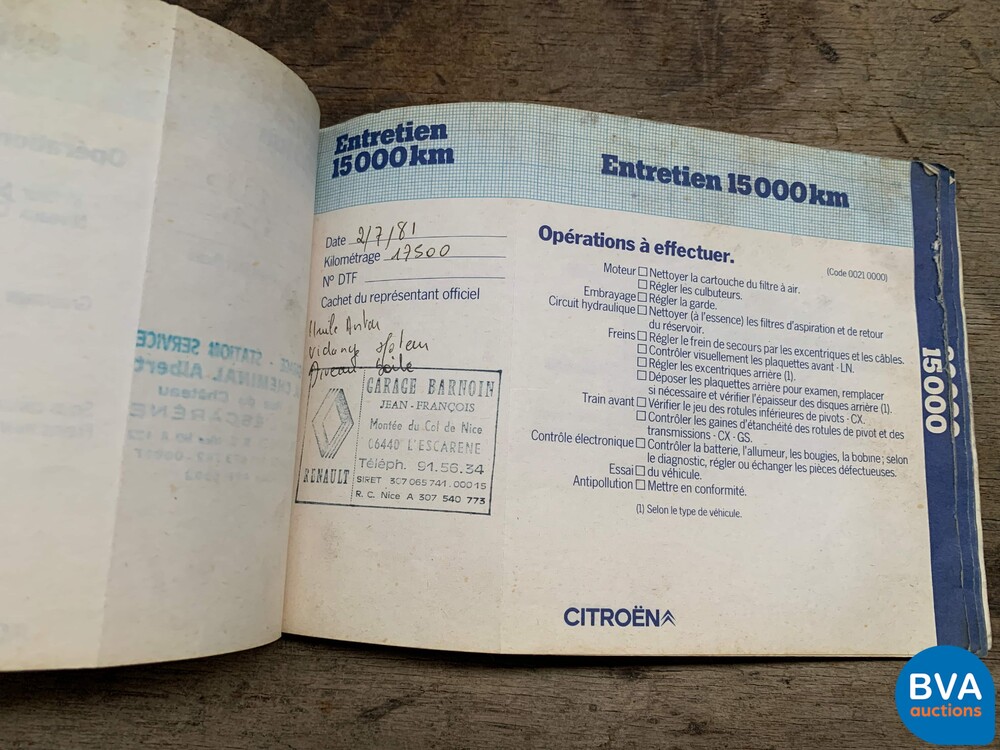 Entretien
15000km
Date 2/7/81
Kilométrage 17500
Nº DTF
Cachet du représentant officiel
Huile
Vidange
GARAGE BARNOIN
JEAN-FRANÇOIS
Montée du Col de Nice
06440 L'ESCARENE
Téléph. 91.56.34
SIRET 307 065 741.00015
R. C. Nice A 307 540 773
RENAULT
Entretien 15000km
Opérations à effectuer.
(Code 0021 0000)
Moteur Nettoyer la cartouche du filtre à air.
Régler les culbuteurs.
Embrayage Régler la garde.
Circuit hydraulique Nettoyer (à l'essence) les filtres d'aspiration et de retour
du réservoir.
Freins Régler le frein de secours par les excentriques et les câbles.
Contrôler visuellement les plaquettes avant - LN.
Régler les excentriques arrière (1).
Déposer les plaquettes arrière pour examen, remplacer
si nécessaire et vérifier l'épaisseur des disques arrière (1).
Train avant Vérifier le jeu des rotules inférieures de pivots - CX.
Contrôler les gaines d'étanchéité des rotules de pivot et des
transmissions - CX - GS.
Contrôle électronique Contrôler la batterie, l'allumeur, les bougies, la bobine; selon
le diagnostic, régler ou échanger les pièces défectueuses.
Essai du véhicule.
Antipollution Mettre en conformité.
(1) Selon le type de véhicule.
CITROËN
15000
STATION SERVICE
CHEMINAL Albert
du Château
ESCARÈNE
BVA
auctions